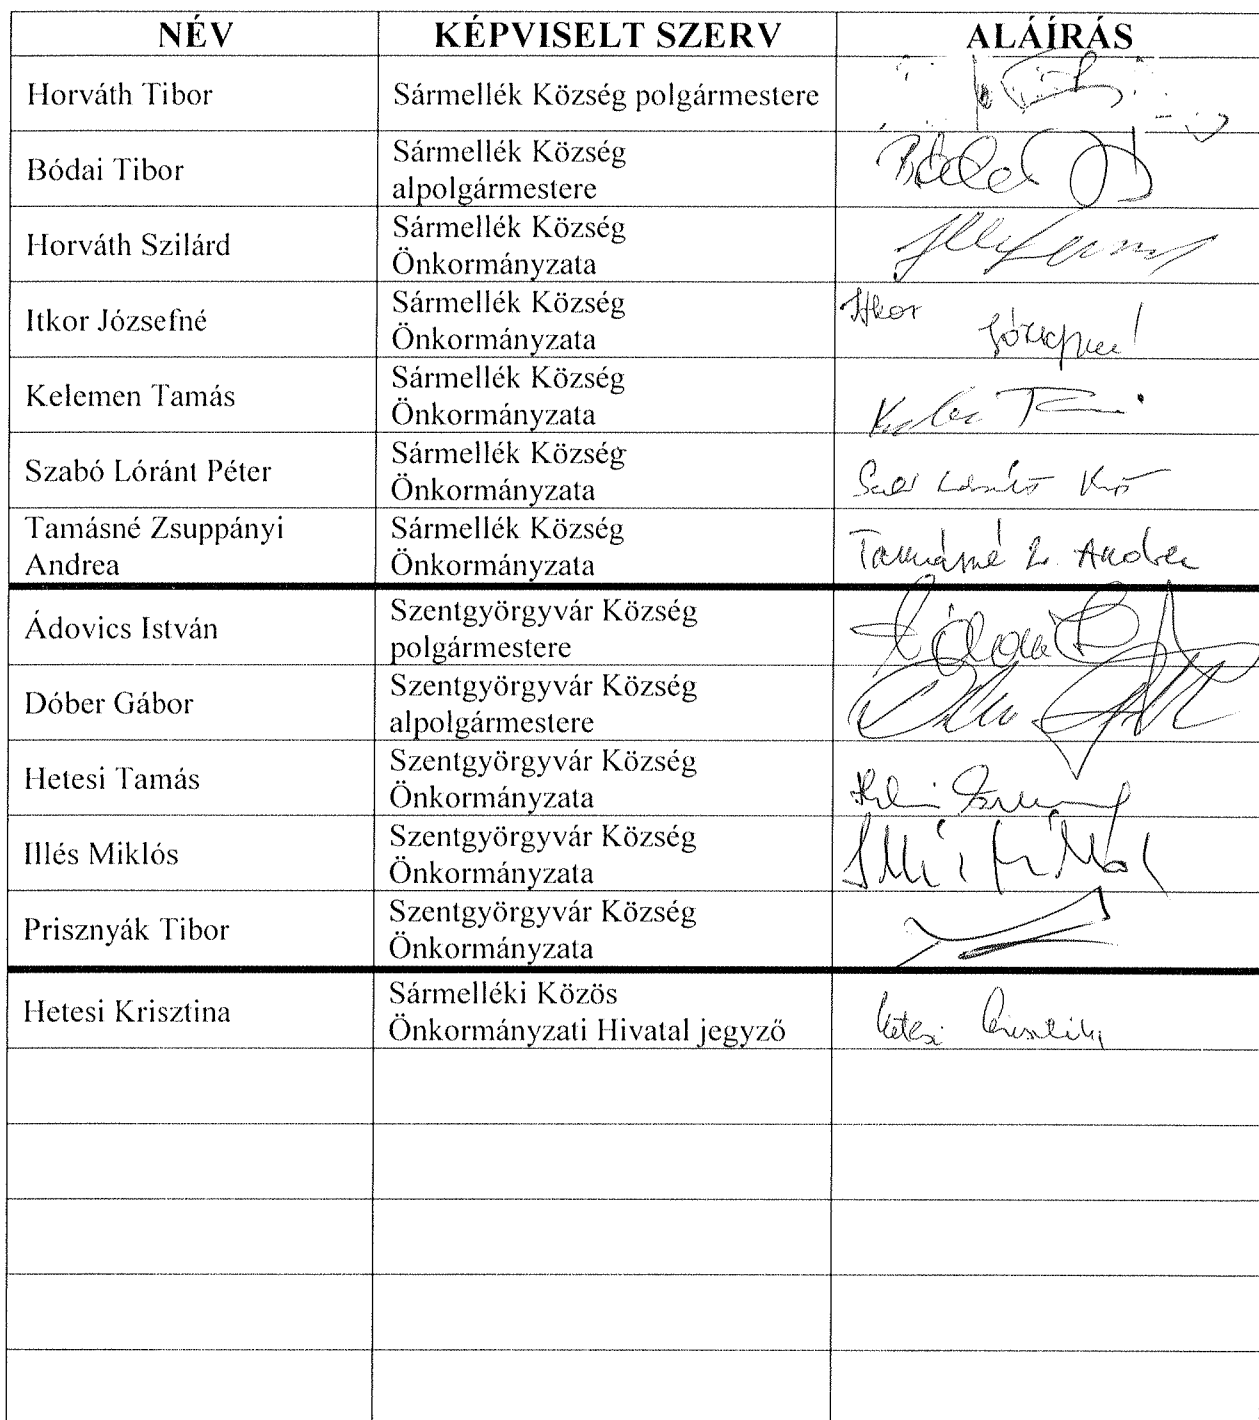 NÉV KÉPVISELT SZERV ALÁÍRÁS
Horváth Tibor Sármellék Község polgármestere
Bódai Tibor Sármellék Község
alpolgármestere
Horváth Szilárd Sármellék Község
Önkormányzata
Itkor Józsefné Sármellék Község
Önkormányzata
Itkor Józsefné
Kelemen Tamás Sármellék Község
Önkormányzata
Szabó Lóránt Péter Sármellék Község
Önkormányzata
Tamásné Zsuppányi
Andrea
Sármellék Község
Önkormányzata
Tamásné Zs. Andrea
Ádovics István Szentgyörgyvár Község
polgármestere
Dóber Gábor Szentgyörgyvár Község
alpolgármestere
Hetesi Tamás Szentgyörgyvár Község
Önkormányzata
Illés Miklós Szentgyörgyvár Község
Önkormányzata
Prisznyák Tibor Szentgyörgyvár Község
Önkormányzata
Hetesi Krisztina Sármelléki Közös
Önkormányzati Hivatal jegyző
Hetesi Krisztina